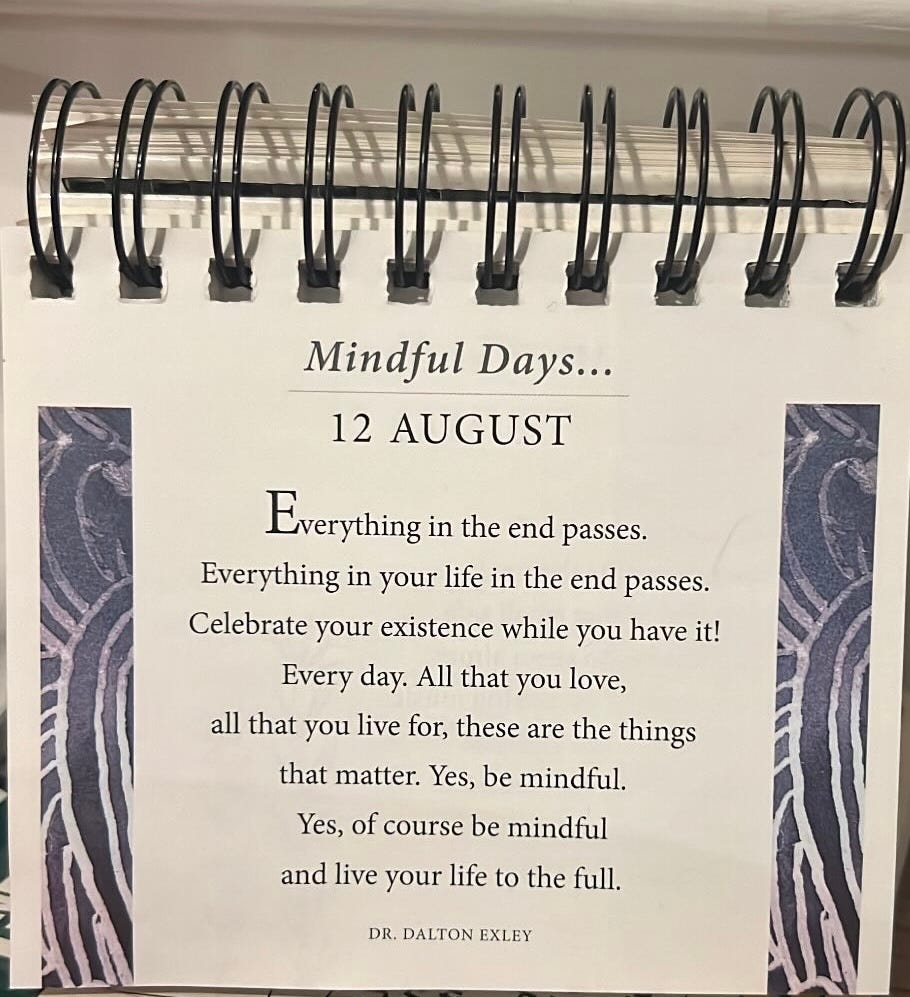 Mindful Days...
12 AUGUST
Everything in the end passes.
Everything in your life in the end passes.
Celebrate your existence while you have it!
Every day. All that you love,
all that you live for, these are the things
that matter. Yes, be mindful.
Yes, of course be mindful
and live your life to the full.
DR. DALTON EXLEY